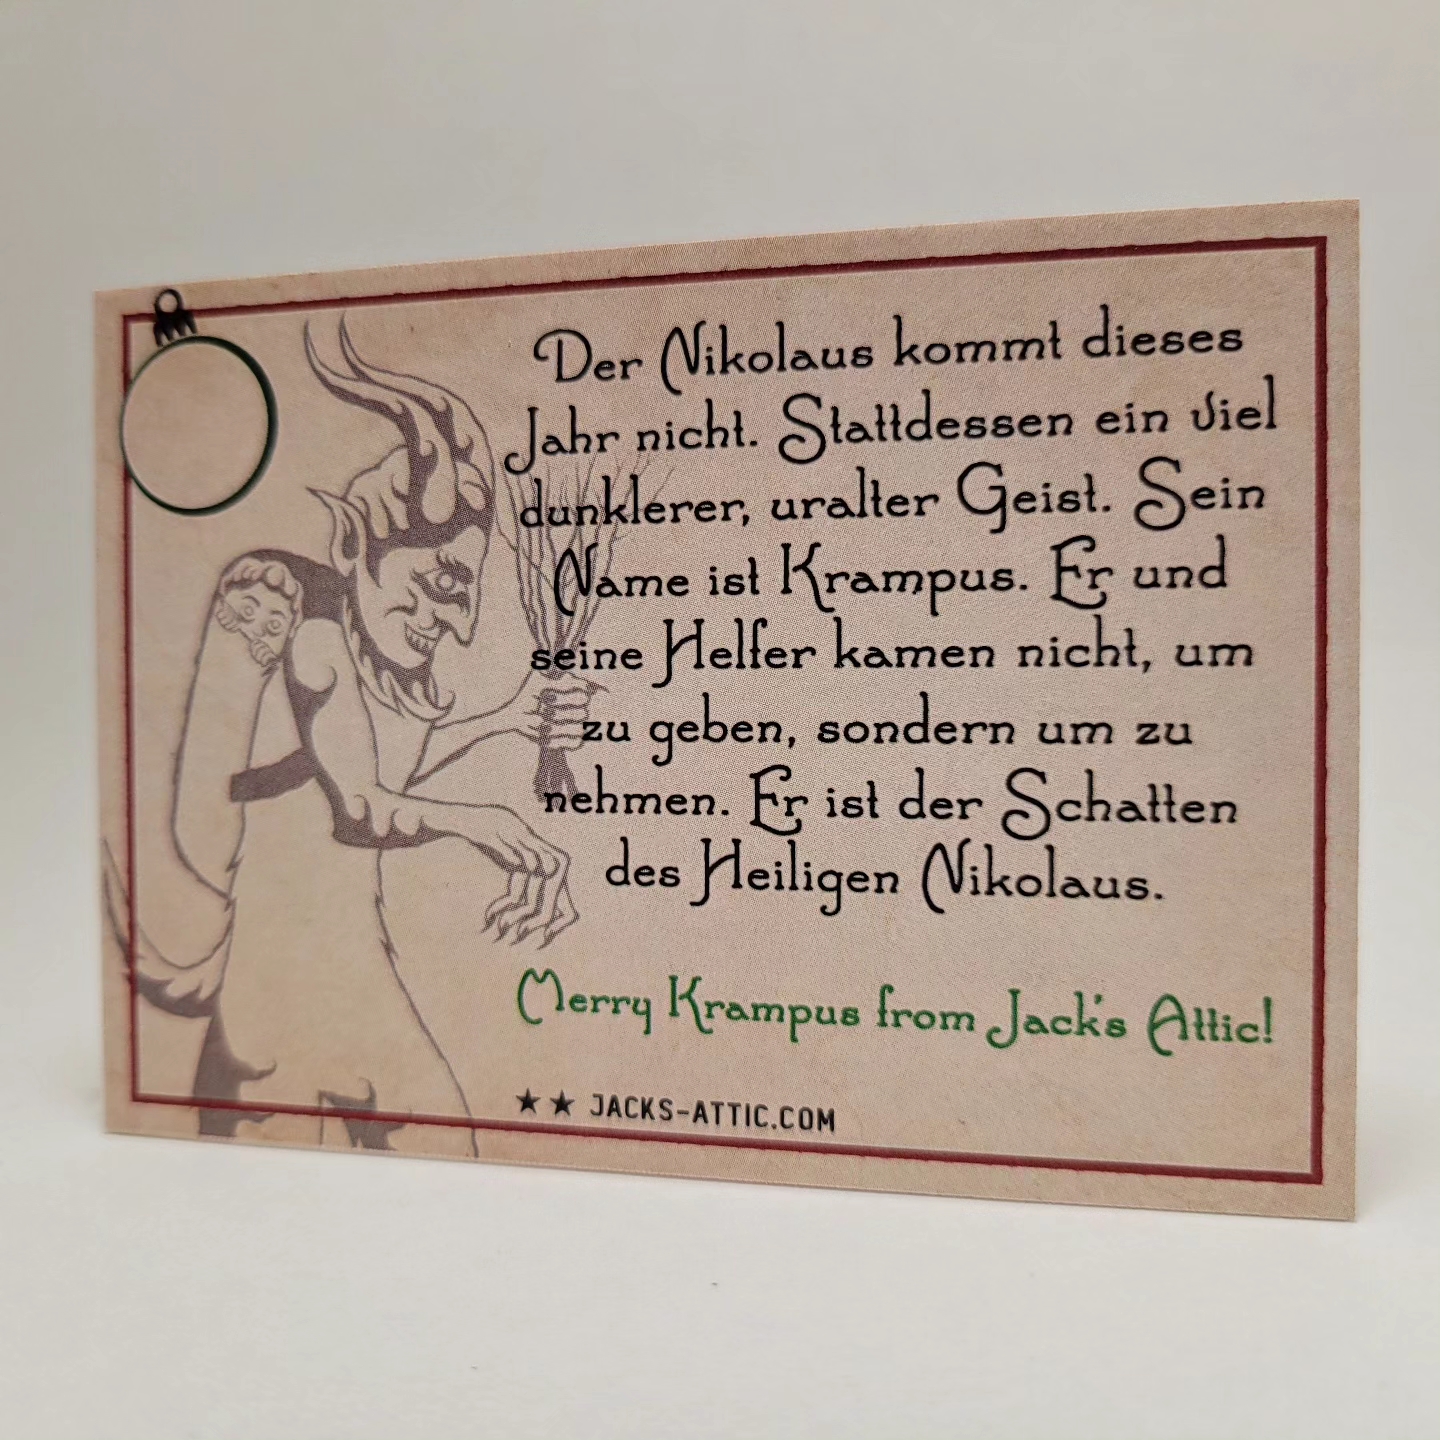 Der Nikolaus kommt dieses
Jahr nicht. Stattdessen ein viel
dunklerer, uralter Geist. Sein
Name ist Krampus. Er und
seine Helfer kamen nicht, um
zu geben, sondern um zu
nehmen. Er ist der Schatten
des Heiligen Nikolaus.
Merry Krampus from Jack's Attic!
★★ JACKS-ATTIC.COM